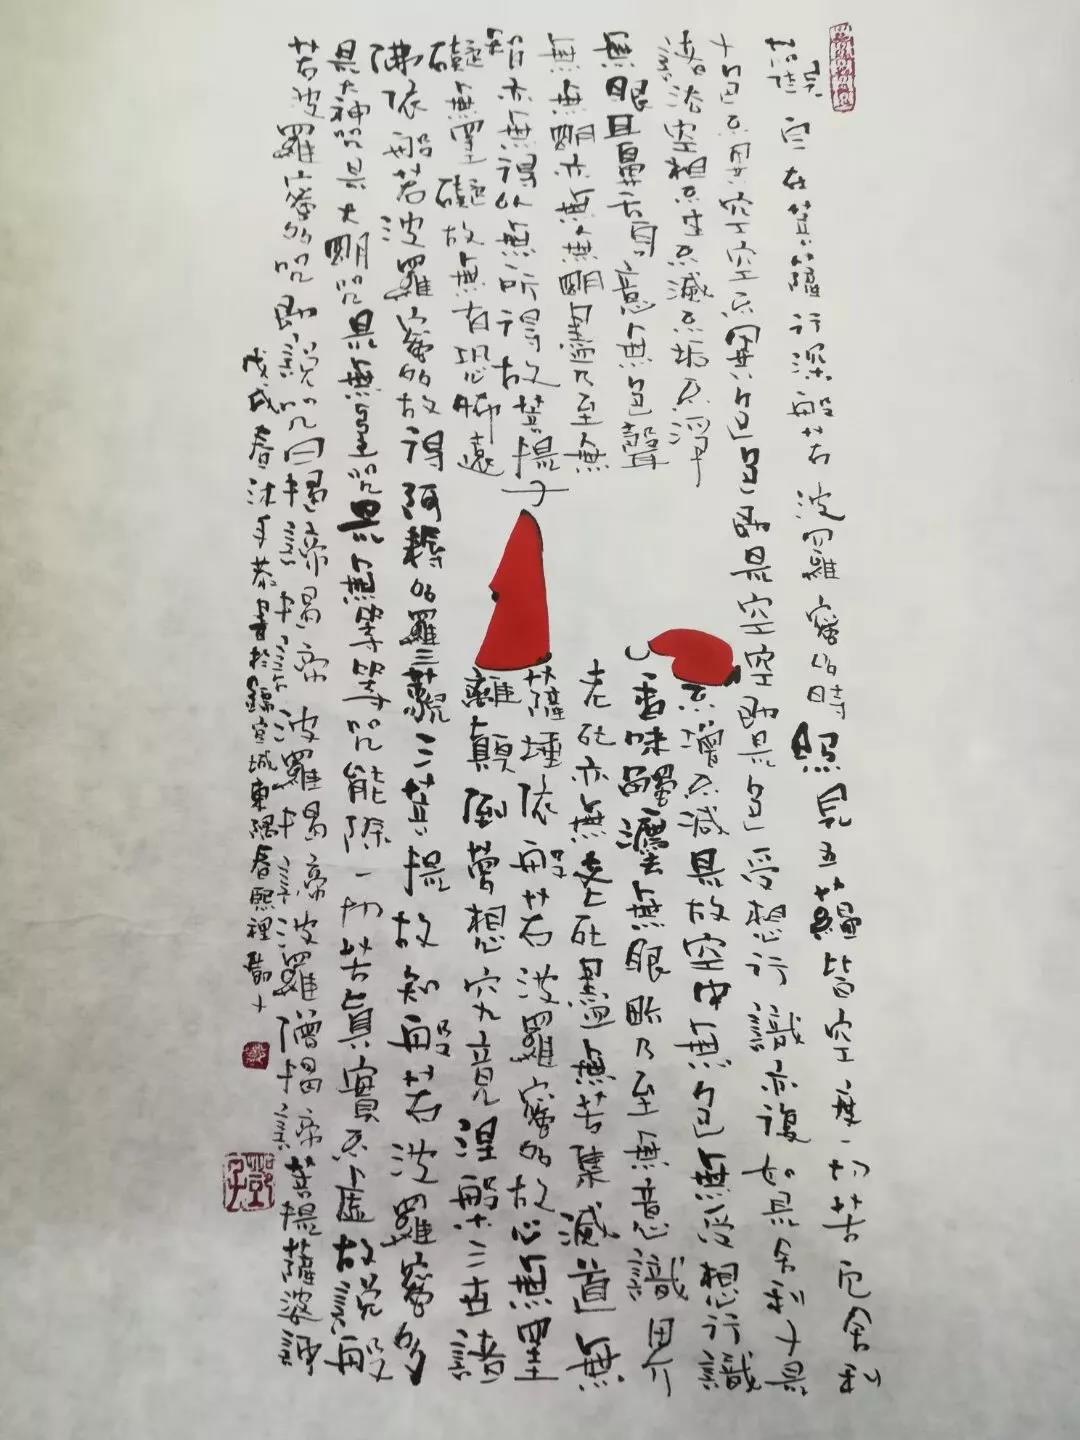 觀自在菩薩行深般若波羅蜜多時照見五蘊皆空度一切苦厄舍利
子色不異空空不異色色即是空空即是色受想行識亦復如是舍利子是
諸法空相不生不滅不垢不淨不增不減是故空中無色無受想行識
無眼耳鼻舌身意無色聲香味觸法無眼界乃至無意識界
無無明亦無無明盡乃至無老死亦無老死盡無苦集滅道無
智亦無得以無所得故菩提薩埵依般若波羅蜜多故心無罣
礙無罣礙故無有恐怖遠離顛倒夢想究竟涅槃三世諸
佛依般若波羅蜜多故得阿耨多羅三藐三菩提故知般若波羅蜜多
是大神咒是大明咒是無上咒是無等等咒能除一切苦真實不虛故說般
若波羅蜜多咒即說咒曰揭諦揭諦波羅揭諦波羅僧揭諦菩提薩婆訶
戊戌春沐手恭書於錦官城東隅春熙裡鄧子
鄧子